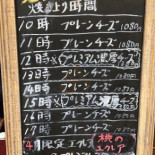 焼上り時間
10時 プレーンチーズ 1080円
11時 プレーンチーズ 1080円
12時 プレミアム濃厚チーズ
13時 プレーンチーズ
14時 プレーンチーズ
15時 プレミアム濃厚チーズ
16時 プレーンチーズ
4月限定エクレア 桜のエクレア
17時 プレーンチーズ